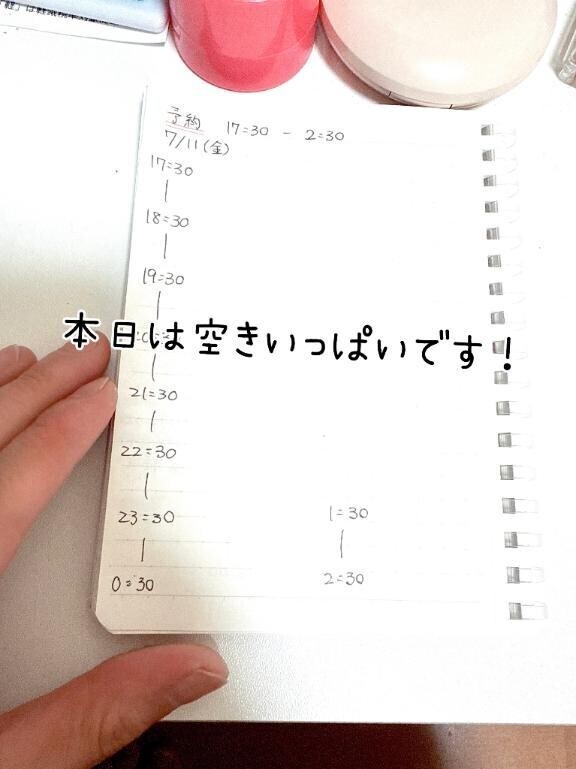 予約 17=30 - 2=30
7/11(金)
17=30
|
18=30
|
19=30
|
本日は空きいっぱいです!
|
21=30
|
22=30
|
23=30
|
0=30
1=30
|
2=30